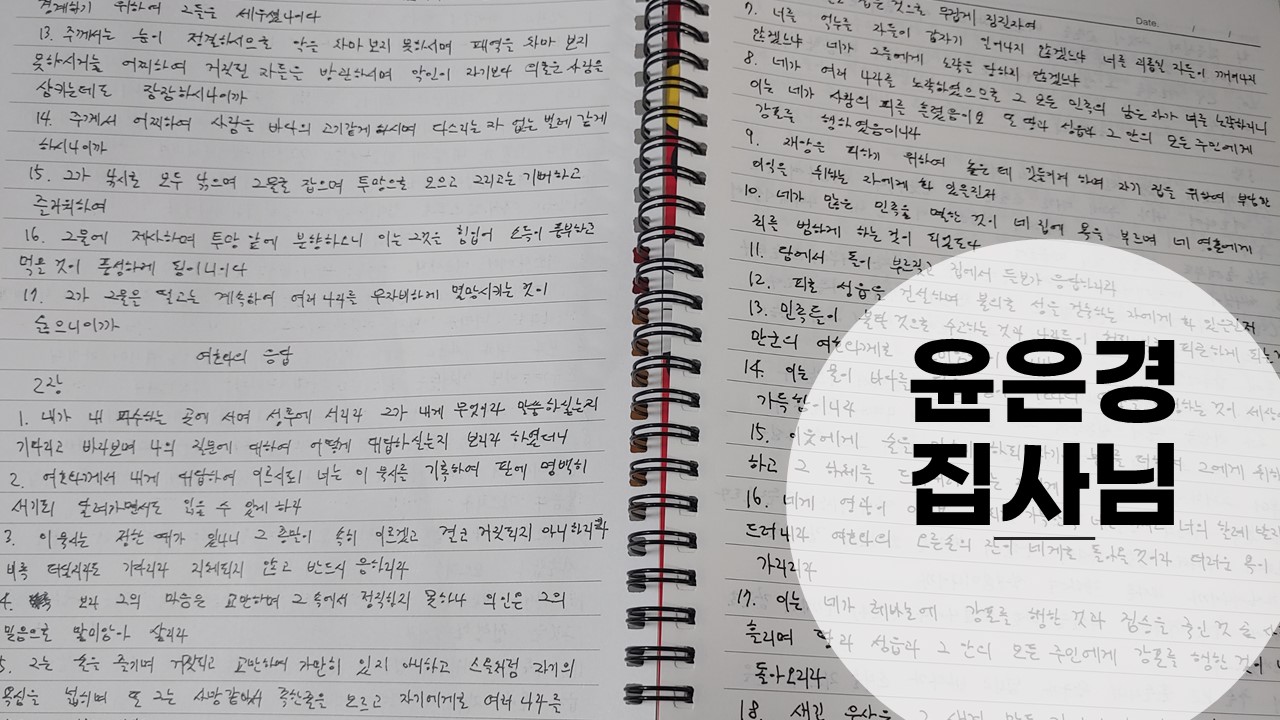 경계하기 위하여 그들을 세우셨나이다
13. 주께서는 눈이 정결하시므로 악을 차마 보지 못하시며 패역을 차마 보지
못하시거늘 어찌하여 거짓된 자들을 방관하시며 악인이 자기보다 의로운 사람을
삼키는데도 잠잠하시나이까
14. 주께서 어찌하여 사람을 바다의 고기같게 하시며 다스리는 자 없는 벌레 같게
하시나이까
15. 그가 낚시로 모두 낚으며 그물로 잡으며 투망으로 모으고 그리고는 기뻐하고
즐거워하여
16. 그물에 제사하며 투망 앞에 분향하오니 이는 그것을 힘입어 소득이 풍부하고
먹을 것이 풍성하게 됨이니이다
17. 그가 그물을 떨고는 계속하여 여러 나라를 무자비하게 멸망시키는 것이
옳으니이까
여호와의 응답
2장
1. 내가 내 파수하는 곳에 서며 성루에 서리라 그가 내게 무엇이라 말씀하실는지
기다리고 바라보며 나의 질문에 대하여 어떻게 대답하실는지 보리라 하였더니
2. 여호와께서 내게 대답하여 이르시되 너는 이 묵시를 기록하여 판에 명백히
새기되 달려가면서도 읽을 수 있게 하라
3. 이 묵시는 정한 때가 있나니 그 종말이 속히 이르겠고 결코 거짓되지 아니하리라
비록 더딜지라도 기다리라 지체되지 않고 반드시 응하리라
4. 보라 그의 마음은 교만하며 그 속에서 정직하지 못하나 의인은 그의
믿음으로 말미암아 살리라
5. 그는 술을 즐기며 거짓되고 교만하여 가만히 있지 아니하고 스올처럼 자기의
욕심을 넓히며 또 그는 사망 같아서 족한 줄을 모르고 자기에게로 여러 나라를
것으로 무겁게 짐진 자여
Date. / /
7. 너를 억누를 자들이 갑자기 일어나지 않겠느냐 너를 괴롭힐 자들이 깨어나지
않겠느냐 네가 그들에게 노략을 당하지 않겠느냐
8. 네가 여러 나라를 노략하였으므로 그 모든 민족의 남은 자가 너를 노략하리니
이는 네가 사람의 피를 흘렸음이요 또 땅과 성읍과 그 안의 모든 주민에게
강포를 행하였음이니라
9. 재앙을 피하기 위하여 높은 데 깃들이려 하며 자기 집을 위하여 부당한
이익을 취하는 자에게 화 있을진저
10. 네가 많은 민족을 멸한 것이 네 집에 욕을 부르며 네 영혼에게
죄를 범하게 하는 것이 되었도다
11. 담에서 돌이 부르짖고 집에서 들보가 응답하리라
12. 피로 성읍을 건설하며 불의로 성을 건축하는 자에게 화 있을진저
13. 민족들이 불탈 것으로 수고하는 것과 나라들이 피곤하게 되는
만군의 여호와께로
14. 이는 물이 바다를 하는 것이 세상
가득함이니라
15. 이웃에게 술을 그에게 취하
하고 그 하체를
16. 네게 영광이 너의 할례
드러내라 여호와의 오른손의 잔이 네게로 돌아올 것이라 더러운 욕이
가리리라
17. 이는 네가 레바논에 강포를 행한 것과 짐승을 죽인 것 곧
흘리며 땅과 성읍과 그 안의 모든 주민에게 강포를 행한 것이
돌아오리라
18. 새긴 우상은
윤은경
집사님